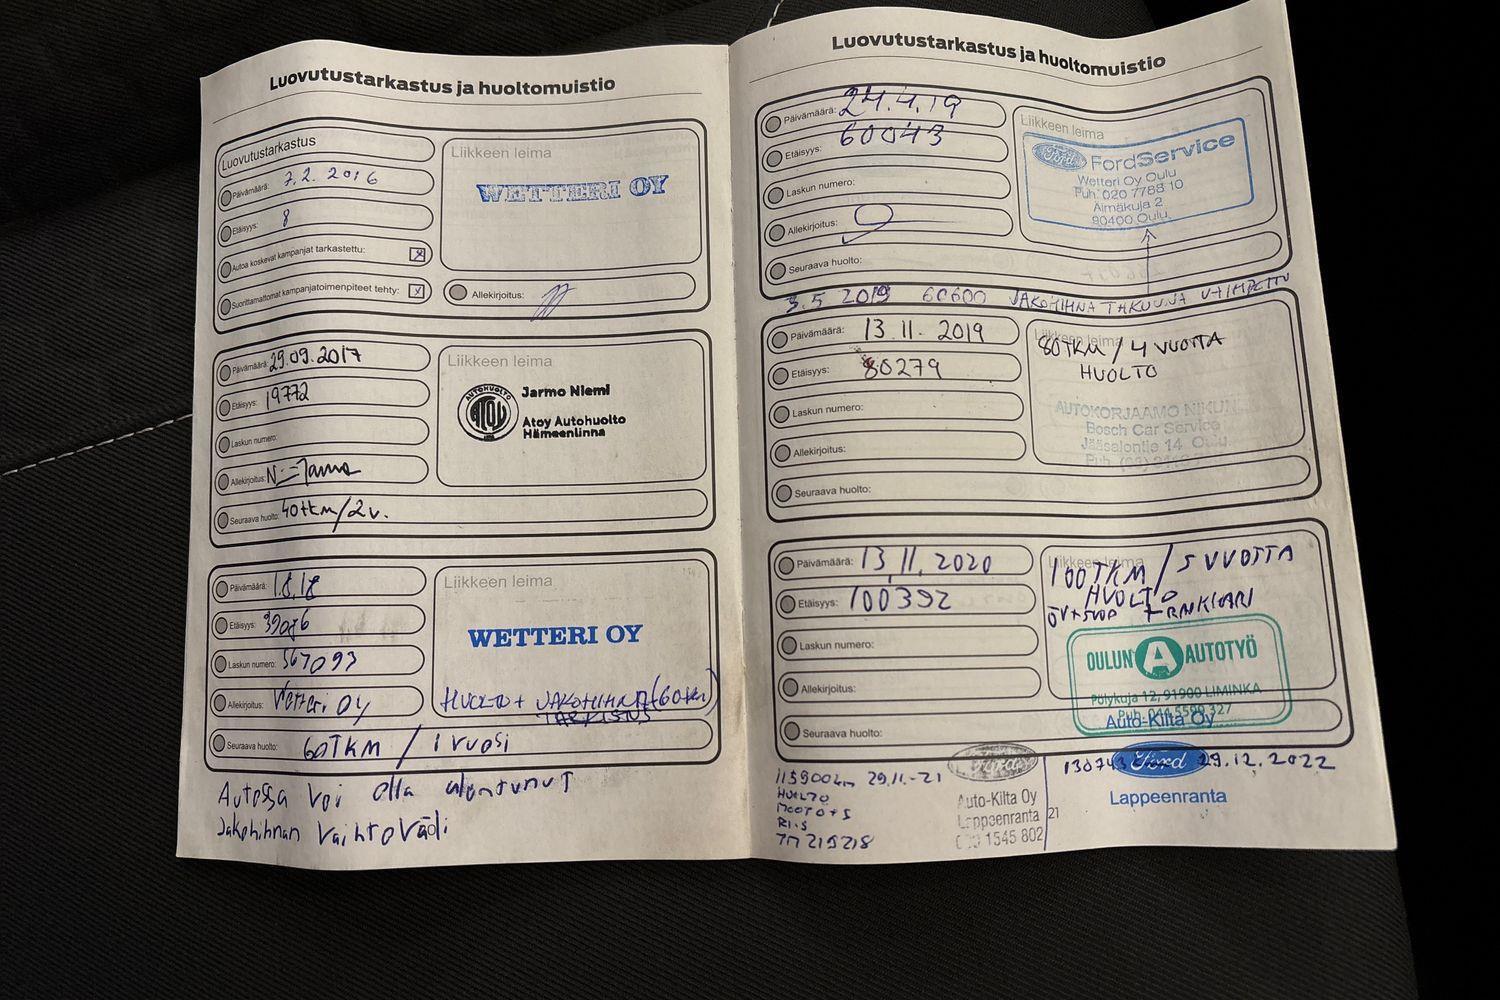 Luovutustarkastus ja huoltomuistio
Luovutustarkastus
Päivämäärä: 7.2. 2016
Etäisyys: 8
Autoa koskevat kampanjat tarkastettu: X
Suorittamattomat kampanjatoimenpiteet tehty: X
Liikkeen leima
WETTERI OY
Allekirjoitus:
Päivämäärä: 29.09.2017
Etäisyys: 19772
Laskun numero:
Allekirjoitus:
Seuraava huolto: 40tkm/2v.
Liikkeen leima
AUTOHUOLTO
ATOY
Jarmo Niemi
Atoy Autohuolto
Hämeenlinna
Päivämäärä: 1.8.18
Etäisyys: 39076
Laskun numero: 567093
Allekirjoitus: Wetteri OY
Seuraava huolto: 60TKM / 1 vuosi
Liikkeen leima
WETTERI OY
HUOLTO + JAKOHIHNA (60tkm)
TARKISTUS
Autossa voi olla
Jakohihnan vaihtoväli
Luovutustarkastus ja huoltomuistio
Päivämäärä: 24.4.19
Etäisyys: 60043
Laskun numero:
Allekirjoitus:
Seuraava huolto:
Liikkeen leima
Ford FordService
Wetteri Oy Oulu
Puh. 020 7788 10
Äimäkuja 2
90400 Oulu
3.5 2019 60600 JAKOHIHNA TAKUUNA VAIHDETTU
Päivämäärä: 13.11.2019
Etäisyys: 80279
Laskun numero:
Allekirjoitus:
Seuraava huolto:
Liikkeen leima
80TKM / 4 VUOTTA
HUOLTO
AUTOKORJAAMO
Bosch Car Service
Jääsalontie 14 Oulu
Päivämäärä: 13.11.2020
Etäisyys: 100392
Laskun numero:
Allekirjoitus:
Seuraava huolto:
Liikkeen leima
100TKM / 5 VUOTTA
HUOLTO
OULUN A AUTOTYÖ
Pölykuja 12, 91900 LIMINKA
Puh. 044 5599 327
Auto-Kilta Oy
115900km 29.11.-21
HUOLTO
Ford
Auto-Kilta Oy
Lappeenranta
1545 802
21
130743 Ford 29.12.2022
Lappeenranta